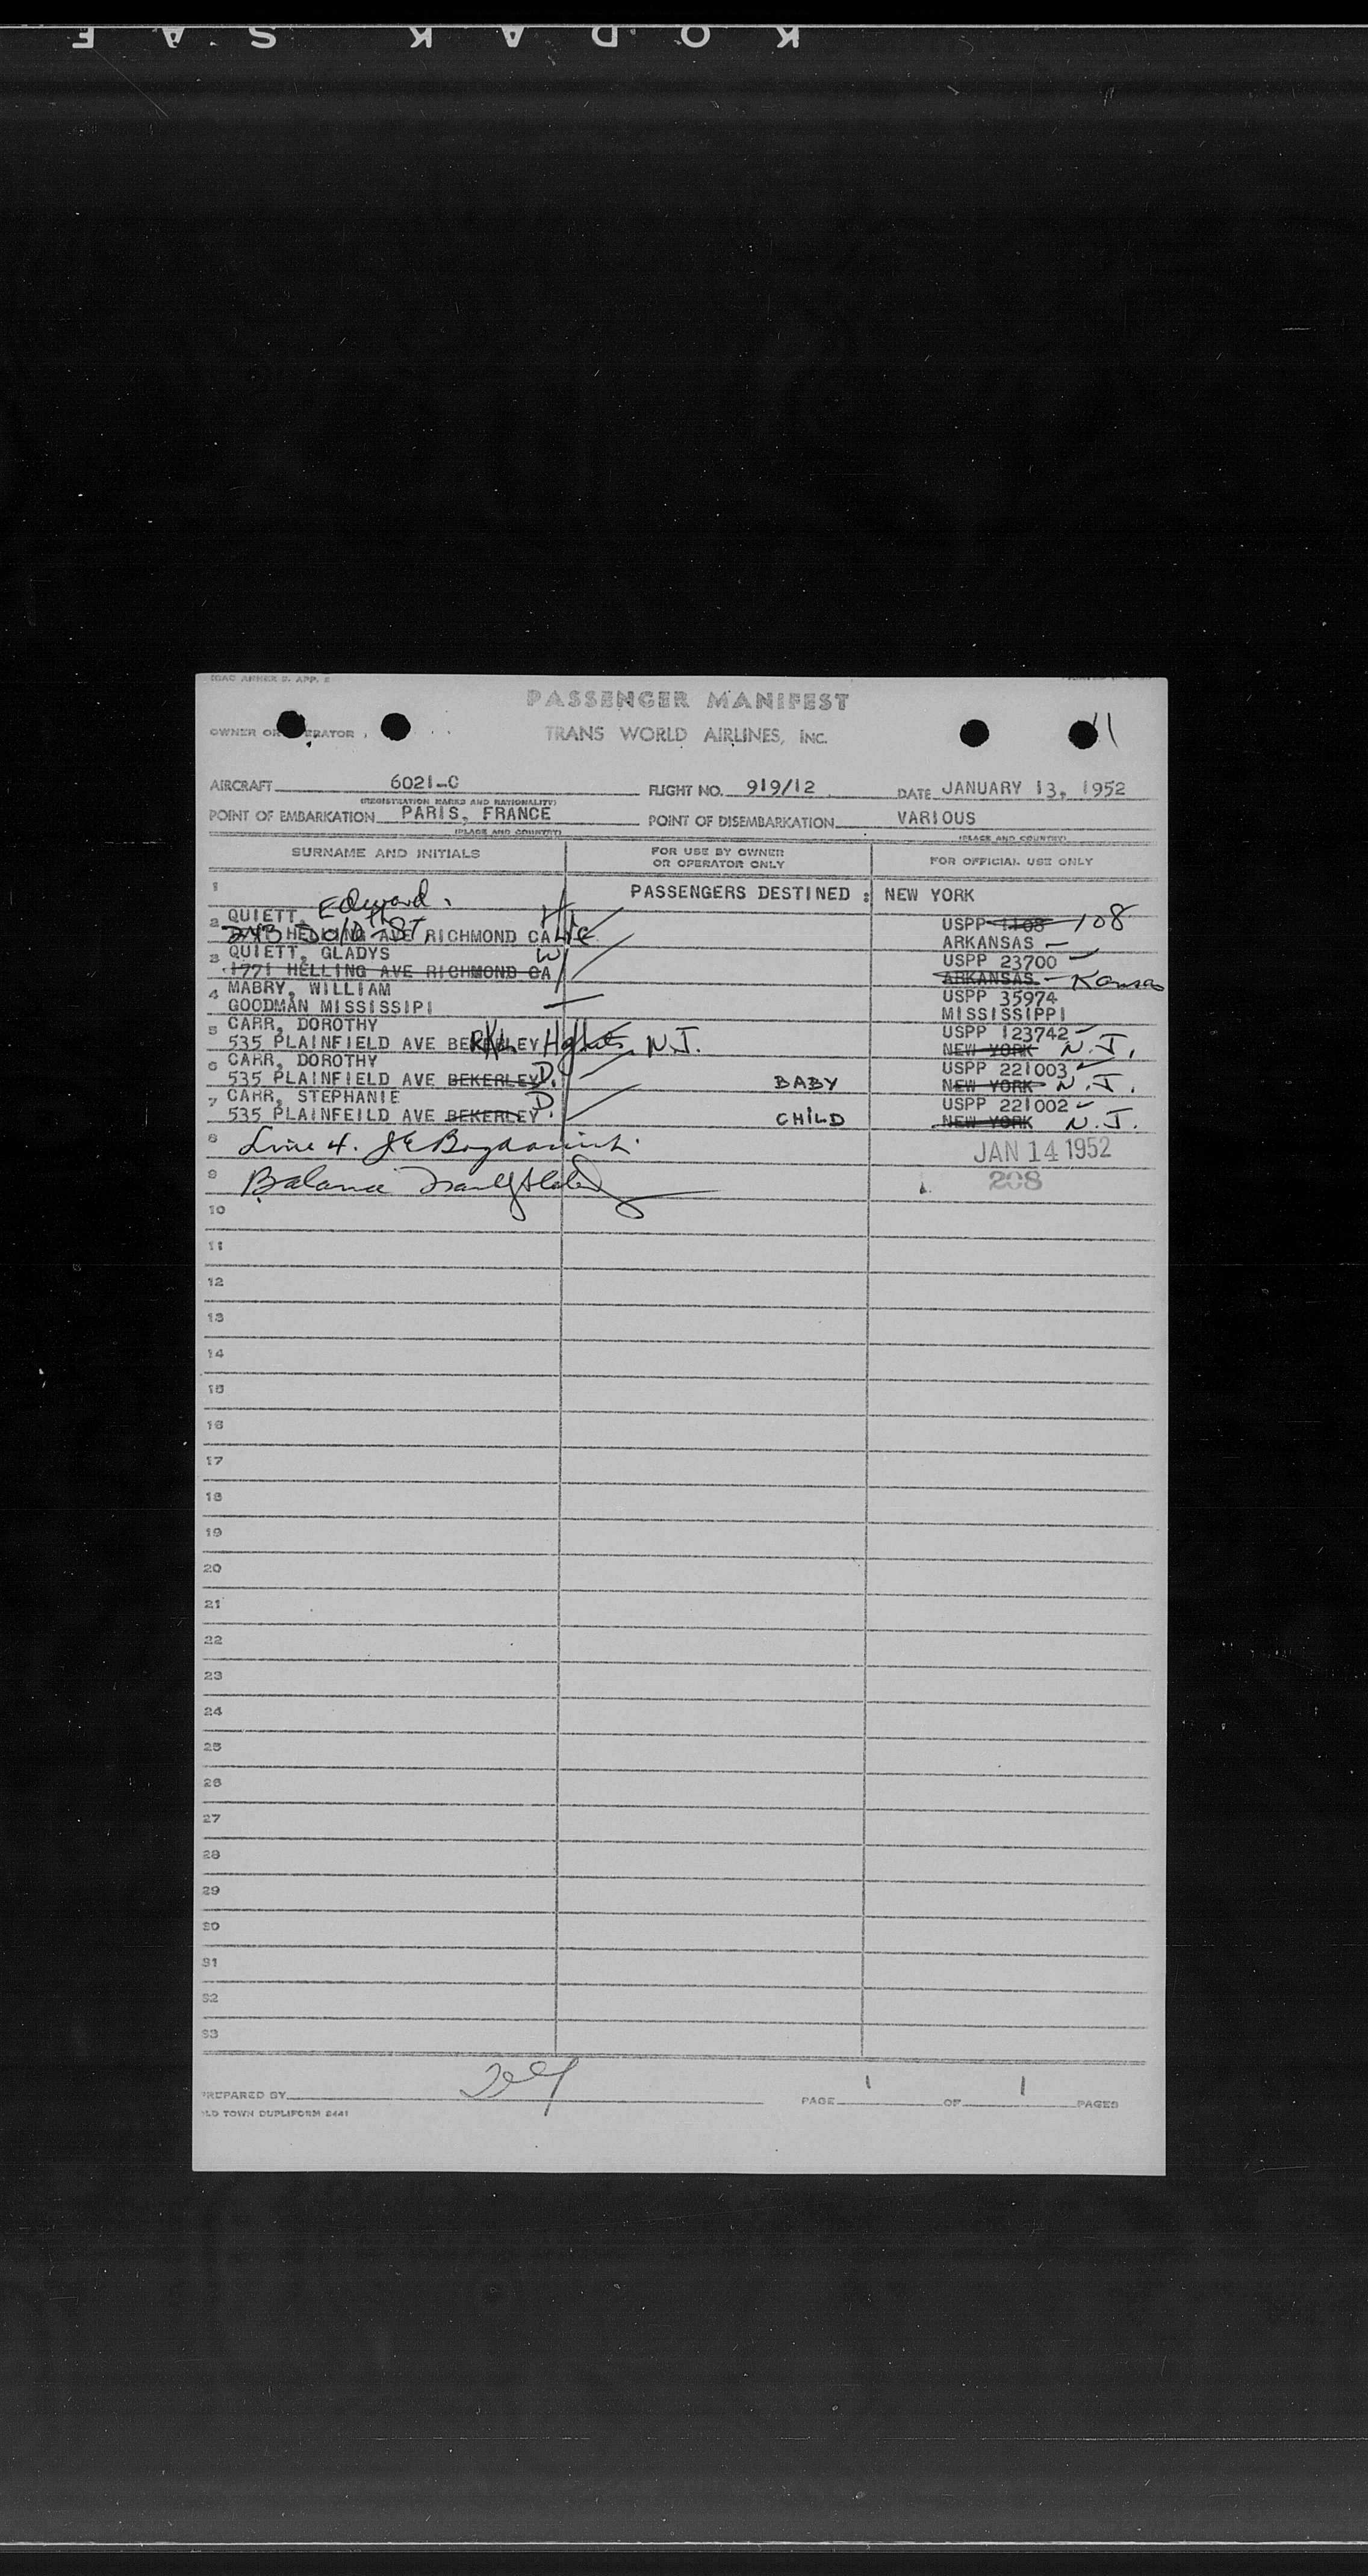 KODAK SAFE
ICAO ANNEX 9. APP. 2
PASSENGER MANIFEST
OWNER OR OPERATOR
TRANS WORLD AIRLINES, INC.
11
AIRCRAFT 6021-C FLIGHT NO. 919/12 DATE JANUARY 13, 1952
(REGISTRATION MARKS AND NATIONALITY)
POINT OF EMBARKATION PARIS, FRANCE POINT OF DISEMBARKATION VARIOUS
(PLACE AND COUNTRY) (PLACE AND COUNTRY)
SURNAME AND INITIALS FOR USE BY OWNER OR OPERATOR ONLY FOR OFFICIAL USE ONLY
1 PASSENGERS DESTINED : NEW YORK
QUIETT, Edward. H USPP 1108 108
2 243 HELLING AVE ST RICHMOND CALIF ARKANSAS
QUIETT, GLADYS W USPP 23700
3 1771 HELLING AVE RICHMOND CA ARKANSAS - Kansas
MABRY, WILLIAM USPP 35974
4 GOODMAN MISSISSIPI MISSISSIPPI
CARR, DOROTHY USPP 123742
5 535 PLAINFIELD AVE BEKERLEY Hghts N.J. NEW YORK N.J.
CARR, DOROTHY USPP 221003
6 535 PLAINFIELD AVE BEKERLEY D. BABY NEW YORK N.J.
CARR, STEPHANIE USPP 221002
7 535 PLAINFEILD AVE BEKERLEY D. CHILD NEW YORK N.J.
8 Line 4. JAN 14 1952
9 Balance 208
10
11
12
13
14
15
16
17
18
19
20
21
22
23
24
25
26
27
28
29
30
31
32
33
PREPARED BY PAGE 1 OF 1 PAGES
OLD TOWN DUPLIFORM 2441